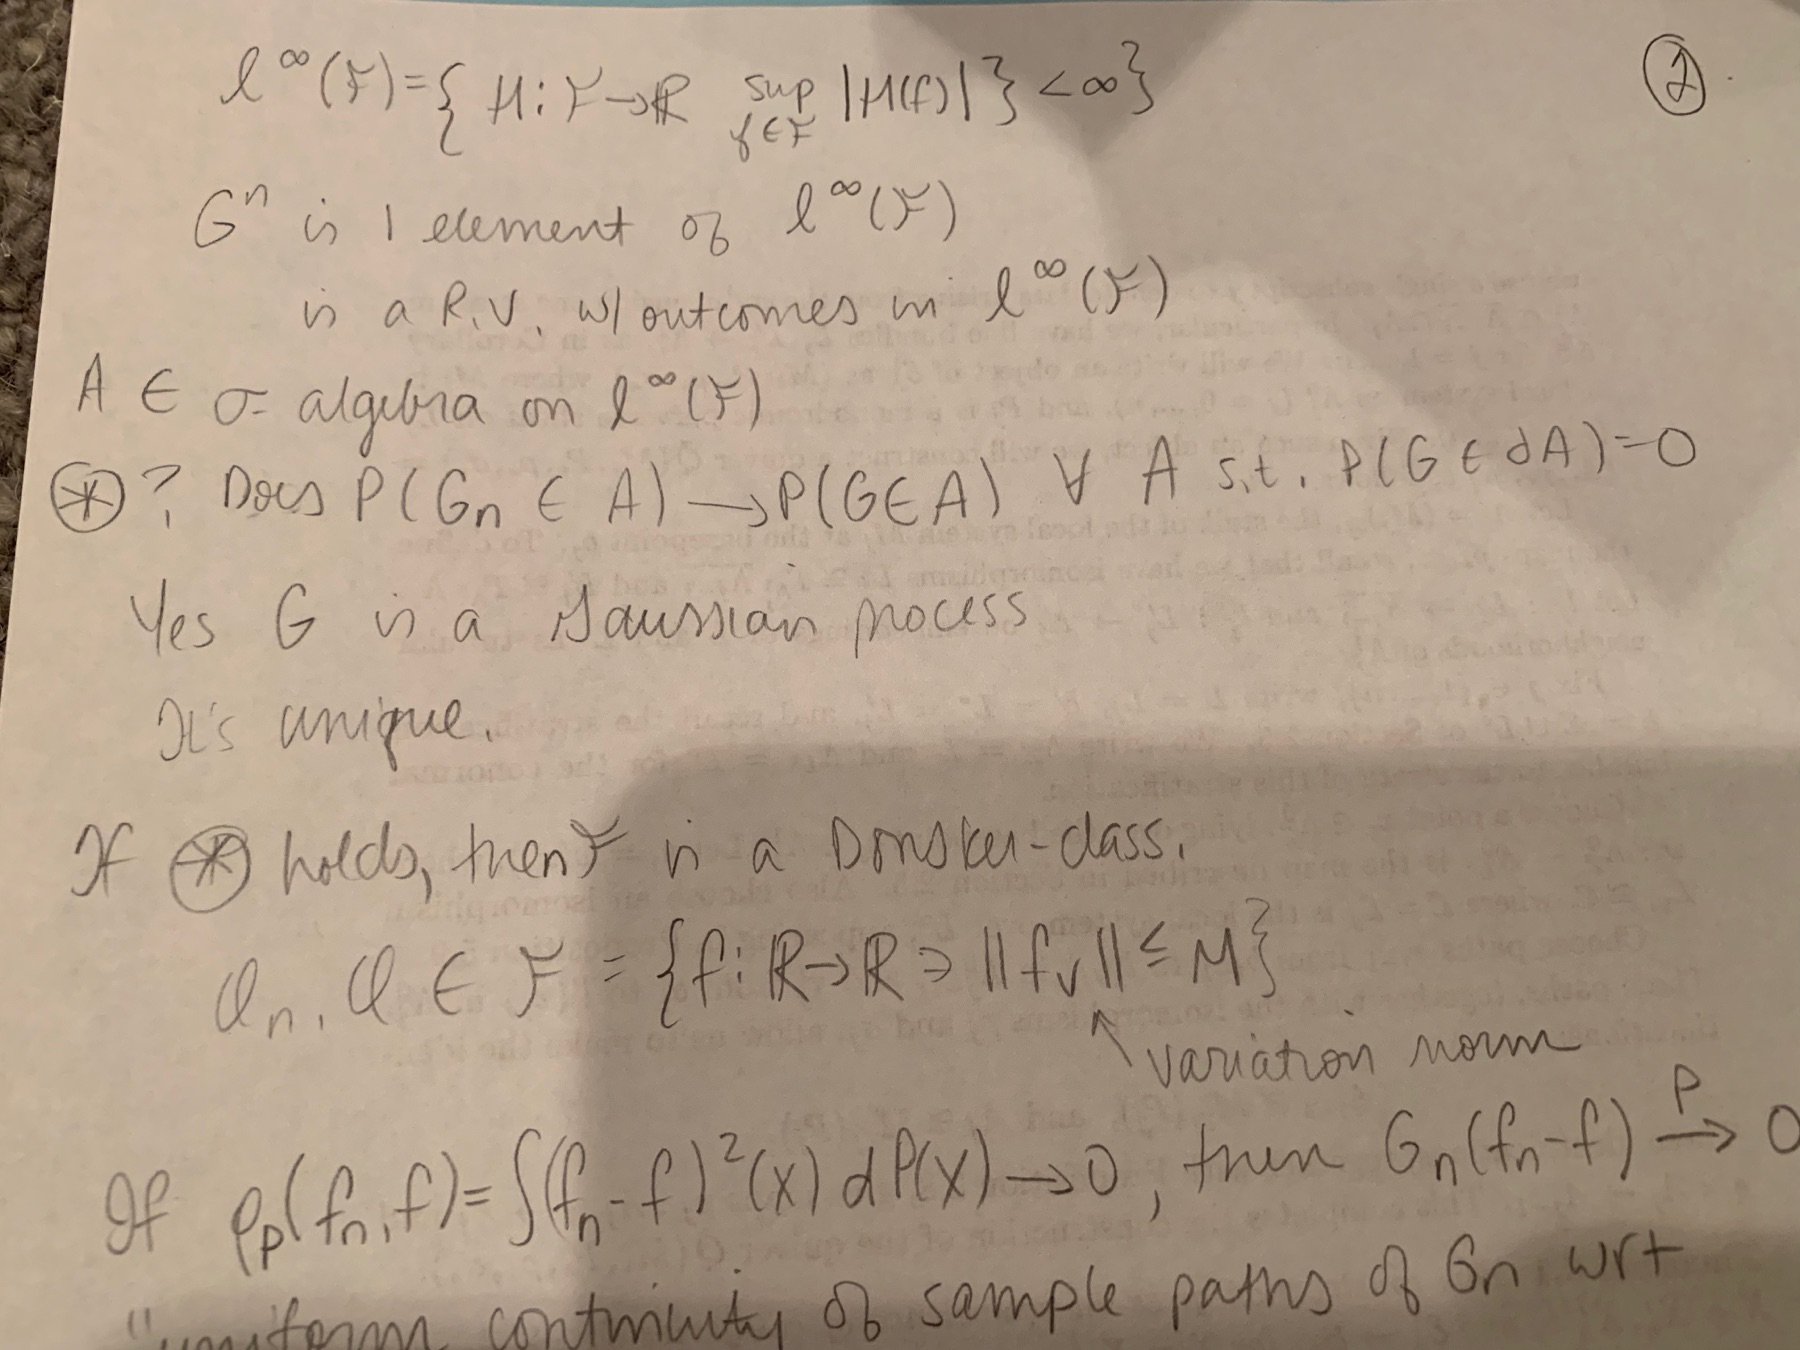 ②.
l^∞(F)={ H: F→ℝ sup |H(f)| } <∞}
f∈F
Gⁿ is 1 element of l^∞(F)
is a R.V. w/ outcomes in l^∞(F)
A ∈ σ- algebra on l^∞(F)
⊛? Does P(Gn ∈ A) → P(G∈A) ∀ A s.t. P(G∈∂A)=0
Yes G is a Gaussian process
It's unique.
If ⊛ holds, then F is a Donsker-class.
n, ∈ F = {f: ℝ→ℝ ∋ ||fv|| ≤ M}
↖ variation norm
If ρp(fn, f)= ∫(fn - f)²(x) dP(x) → 0, then Gn(fn-f) →ᴾ 0
"uniform continuity of sample paths of Gn wrt